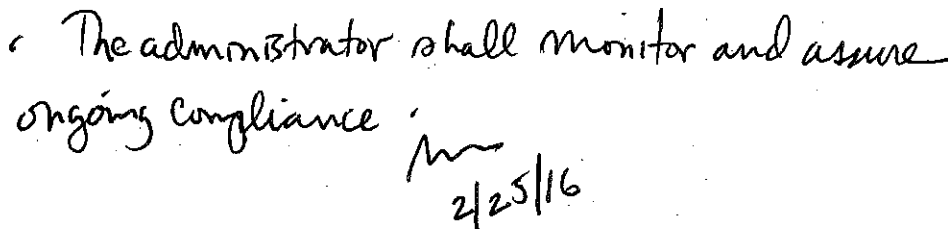 · The administrator shall monitor and assure
ongoing compliance.
2/25/16